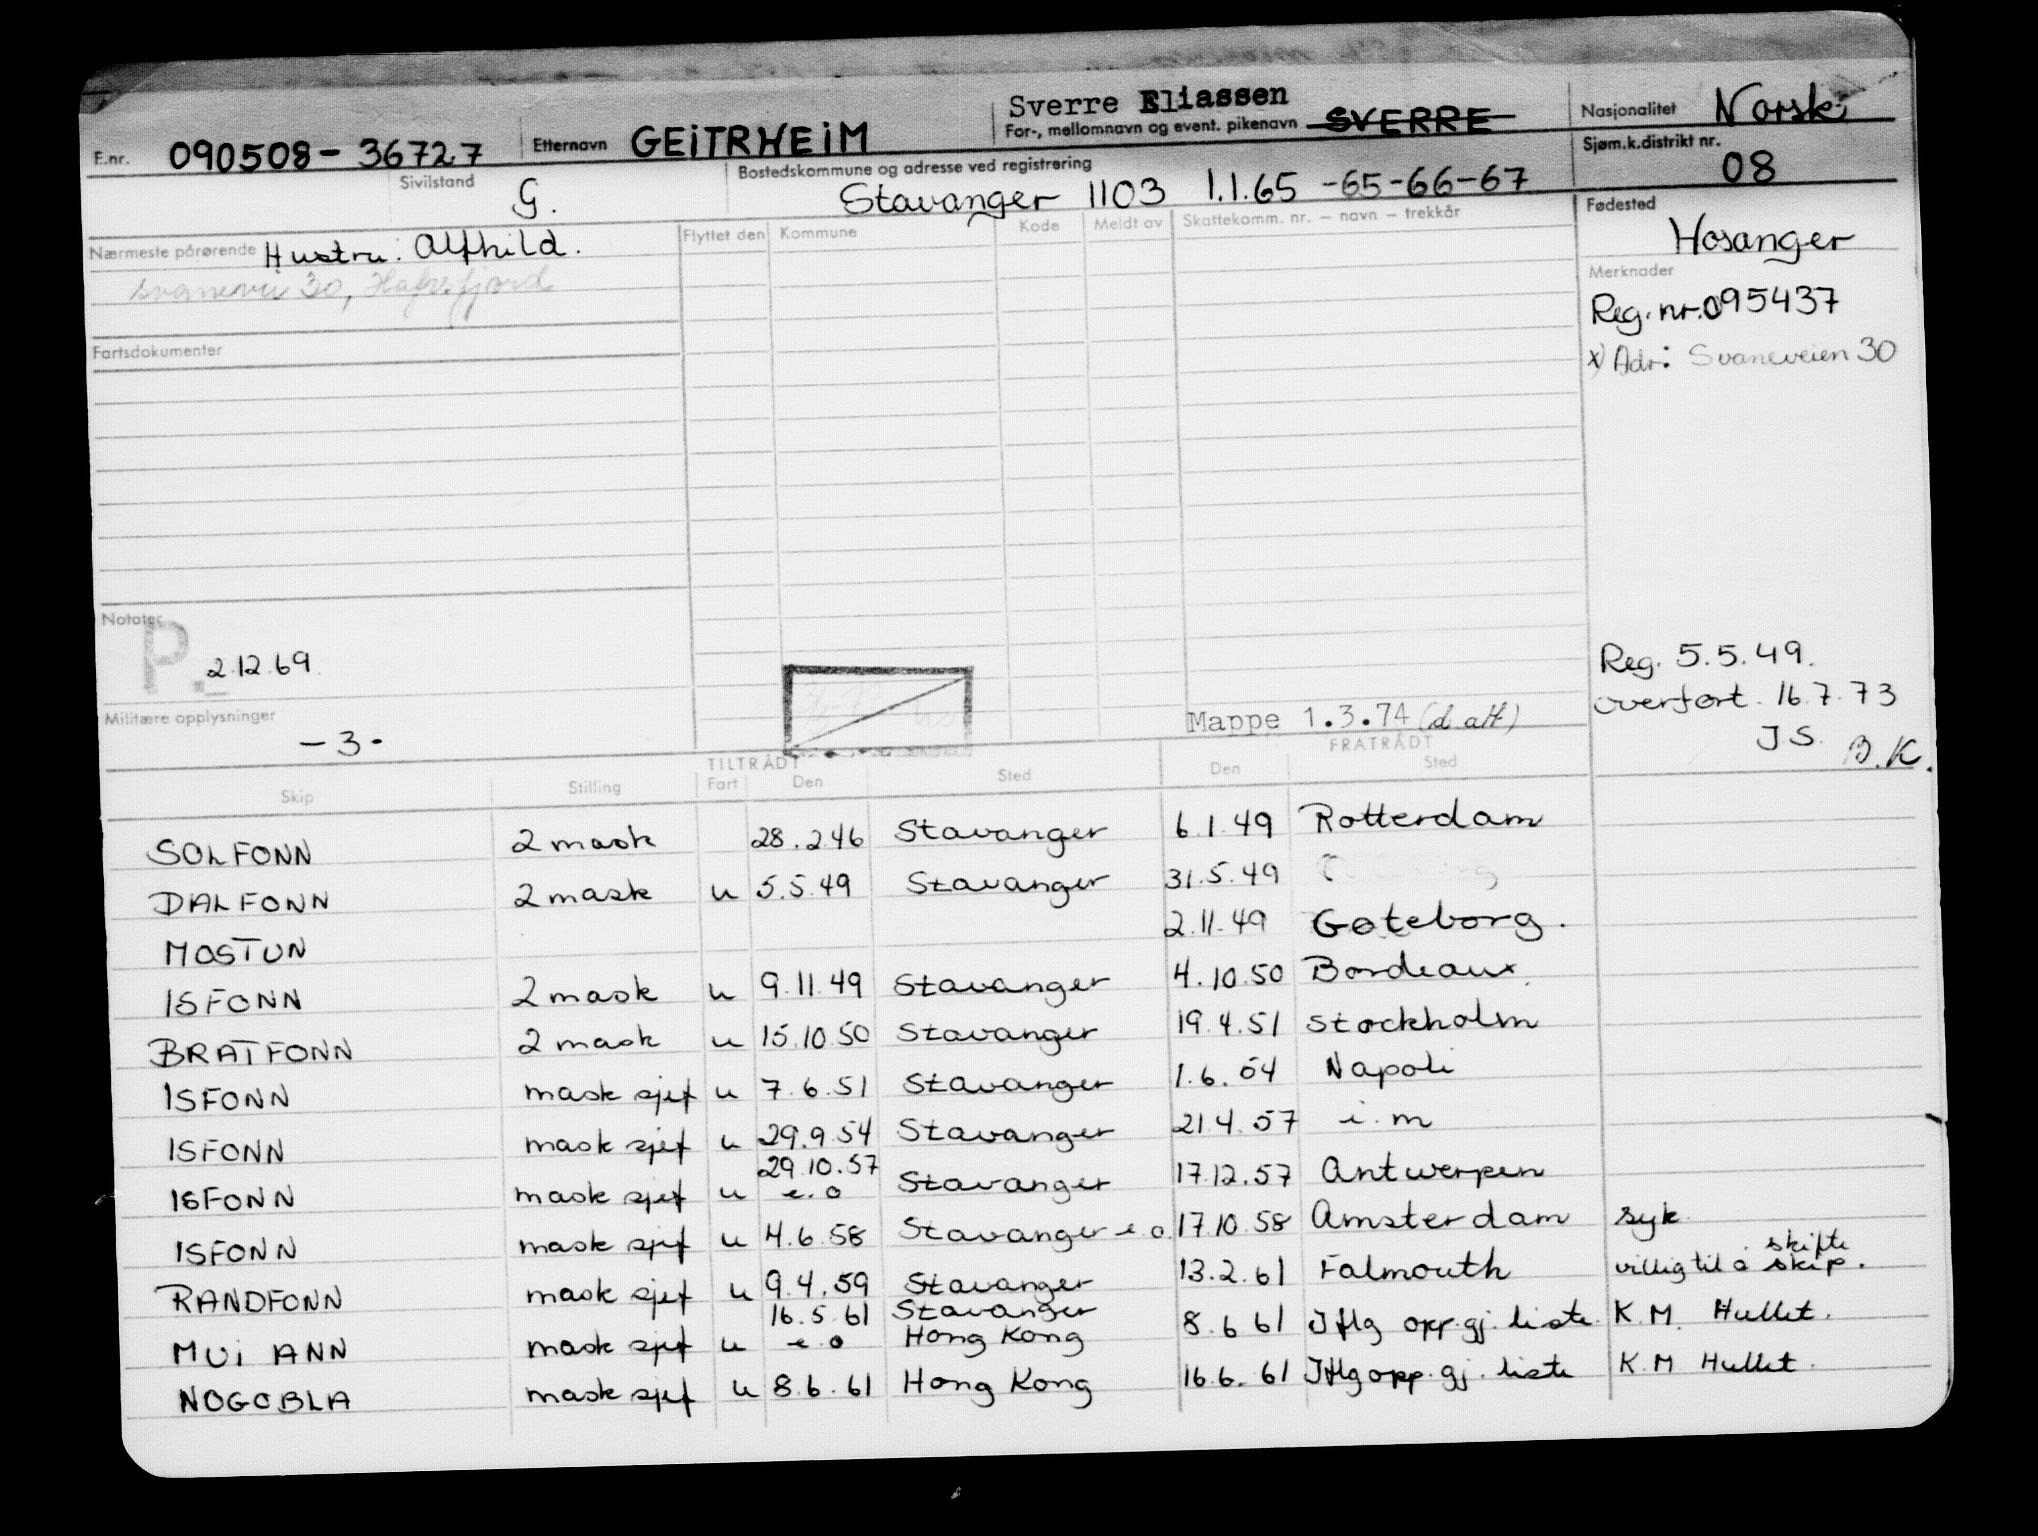 F.nr. 090508-36727 Etternavn GEiTRHEiM Sverre Eliassen For-, mellomnavn og event. pikenavn SVERRE Nasjonalitet Norsk
Sivilstand G. Bostedskommune og adresse ved registrering Stavanger 1103 1.1.65 -65-66-67 Sjøm.k.distrikt nr. 08
Nærmeste pårørende Hustru: Alfhild. Flyttet den Kommune Kode Meldt av Skattekomm. nr. – navn – trekkår Fødested
Hosanger
30, Hafrsfjord
Merknader
Reg. nr. 095437
x) Adr: Svaneveien 30
Fartsdokumenter
Notater
P. 2.12.69
Reg. 5.5.49.
overført. 16.7.73
JS. B.K.
Militære opplysninger
-3-
Mappe 1.3.74 (d alf)
TILTRÅDT FRATRÅDT
Skip Stilling Fart Den Sted Den Sted
SOLFONN 2 mask 28.2.46 Stavanger 6.1.49 Rotterdam
DALFONN 2 mask u 5.5.49 Stavanger 31.5.49
MOSTUN 2.11.49 Gøteborg.
ISFONN 2 mask u 9.11.49 Stavanger 4.10.50 Bordeaux.
BRATFONN 2 mask u 15.10.50 Stavanger 19.4.51 Stockholm
ISFONN mask sjef u 7.6.51 Stavanger 1.6.54 Napoli
ISFONN mask sjef u 29.9.54 Stavanger 21.4.57 i.m
ISFONN mask sjef u 29.10.57 e.o Stavanger 17.12.57 Antwerpen
ISFONN mask sjef u 4.6.58 Stavanger e.o. 17.10.58 Amsterdam syk.
RANDFONN mask sjef u 9.4.59 Stavanger 13.2.61 Falmouth villig til å skifte skip.
MUi ANN mask sjef u 16.5.61 e.o Stavanger Hong Kong 8.6.61 Iflg opp.gj. liste K.M. Hullet.
NOGOBLA mask sjef u 8.6.61 Hong Kong 16.6.61 Iflg opp.gj. liste K.M Hullet.